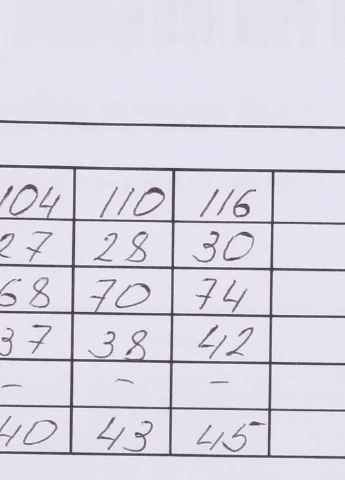 104 110 116
27 28 30
68 70 74
37 38 42
– – –
40 43 45